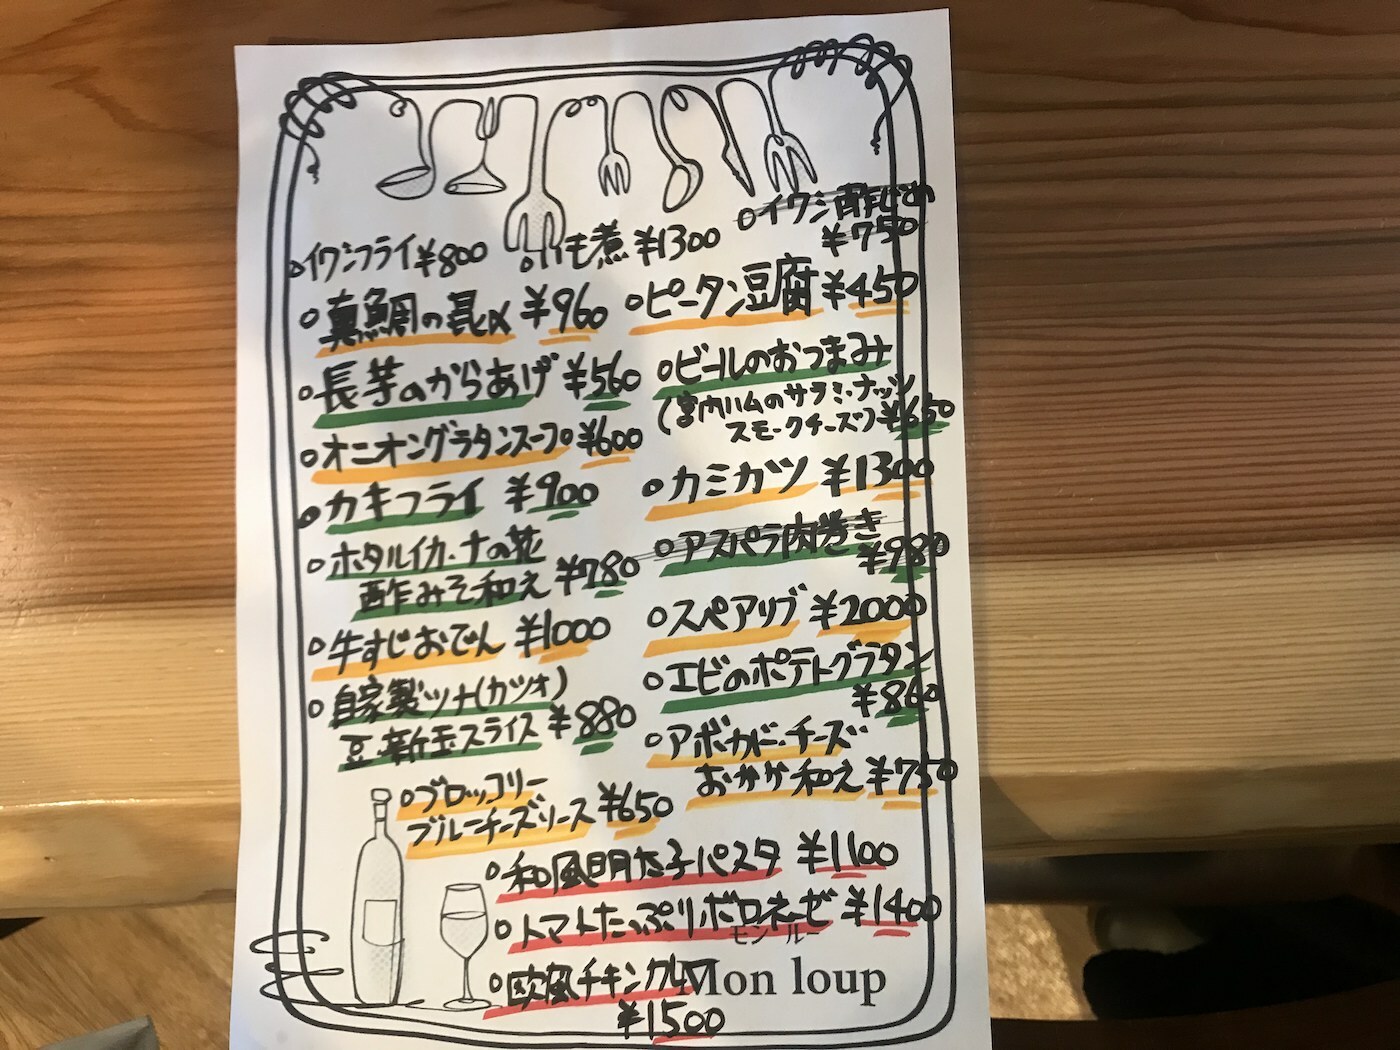 ○イワシフライ ¥800
○真鯛の昆〆 ¥960
○長芋のからあげ ¥560
○オニオングラタンスープ ¥600
○カキフライ ¥900
○ホタルイカ・ナの花
酢みそ和え ¥780
○牛すじおでん ¥1000
○自家製ツナ(カツオ)
豆・新玉スライス ¥880
○ブロッコリー
ブルーチーズソース ¥650
煮 ¥1300
○イワシ酢じめ
¥750
○ピータン豆腐 ¥450
○ビールのおつまみ
(宮内ハムのサラミ・ナッツ
スモークチーズ) ¥650
○カミカツ ¥1300
○アスパラ肉巻き
¥980
○スペアリブ ¥2000
○エビのポテトグラタン
¥860
○アボカド・チーズ
おかか和え ¥750
○和風明太子パスタ ¥1100
○トマトたっぷりボロネーゼ ¥1400
モン ルー
Mon loup
○欧風チキンカレー
¥1500